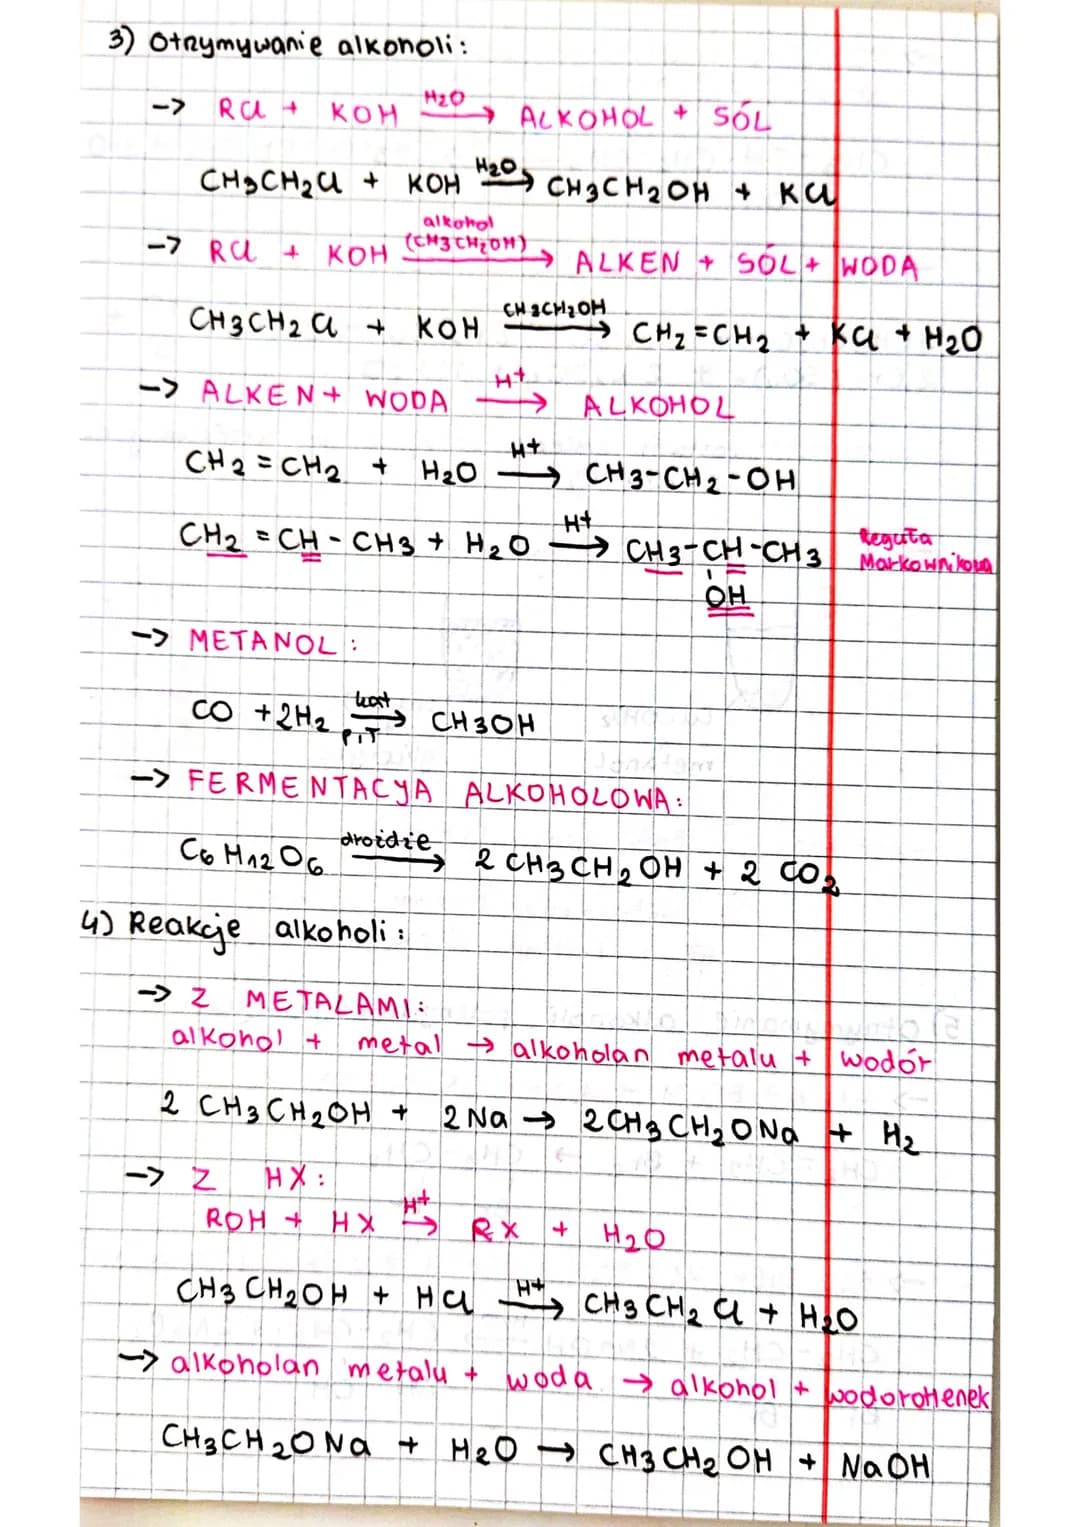 3) Otrzymywanie alkoholi:
-> RCl + KOH H2O→ ALKOHOL + SÓL
CH3CH2Cl + KOH H2O→ CH3CH2OH + KCl
-> RCl + KOH alkohol (CH3CH2OH)→ ALKEN + SÓL + WODA
CH3CH2Cl + KOH CH3CH2OH→ CH2=CH2 + KCl + H2O
-> ALKEN + WODA H+→ ALKOHOL
CH2=CH2 + H2O H+→ CH3-CH2-OH
CH2=CH-CH3 + H2O H+→ CH3-CH-CH3 Reguła
OH Markownikowa
-> METANOL:
CO + 2H2 kat→ p,T CH3OH
-> FERMENTACYA ALKOHOLOWA:
C6H12O6 drożdże→ 2 CH3CH2OH + 2 CO2
4) Reakcje alkoholi:
-> Z METALAMI:
alkohol + metal → alkoholan metalu + wodór
2 CH3CH2OH + 2 Na → 2 CH3CH2ONa + H2
-> Z HX:
ROH + HX H+→ RX + H2O
CH3CH2OH + HCl H+→ CH3CH2Cl + H2O
-> alkoholan metalu + woda → alkohol + wodorotlenek
CH3CH2ONa + H2O → CH3CH2OH + NaOH